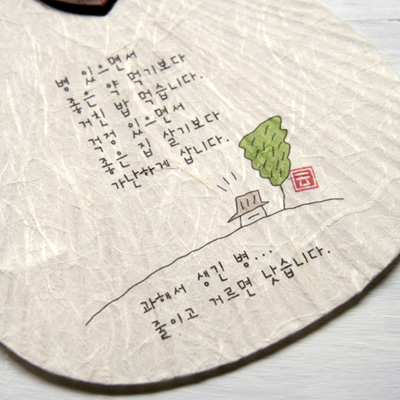 병 있으면서
좋은 약 먹기보다
거친 밥 먹습니다.
걱정 있으면서
좋은 집 살기보다
가난하게 삽니다.
과해서 생긴 병...
줄이고 거르면 낫습니다.